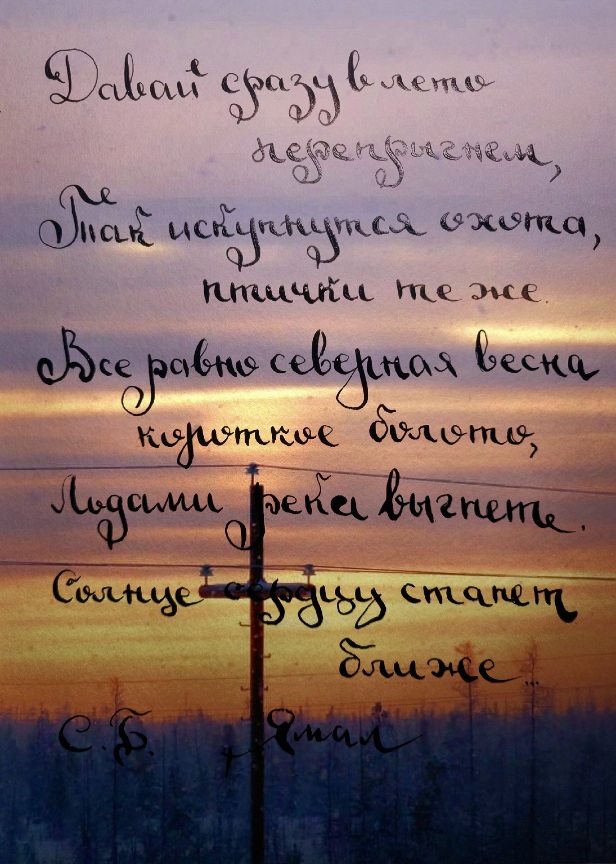 Давай сразу в лето
перепрыгнем,
Так искупнутся охота,
птички те же.
Все равно северная весна
короткое болото,
Льдами река выгнет.
Солнце сердцу станет
ближе...
С.Б. Ямал